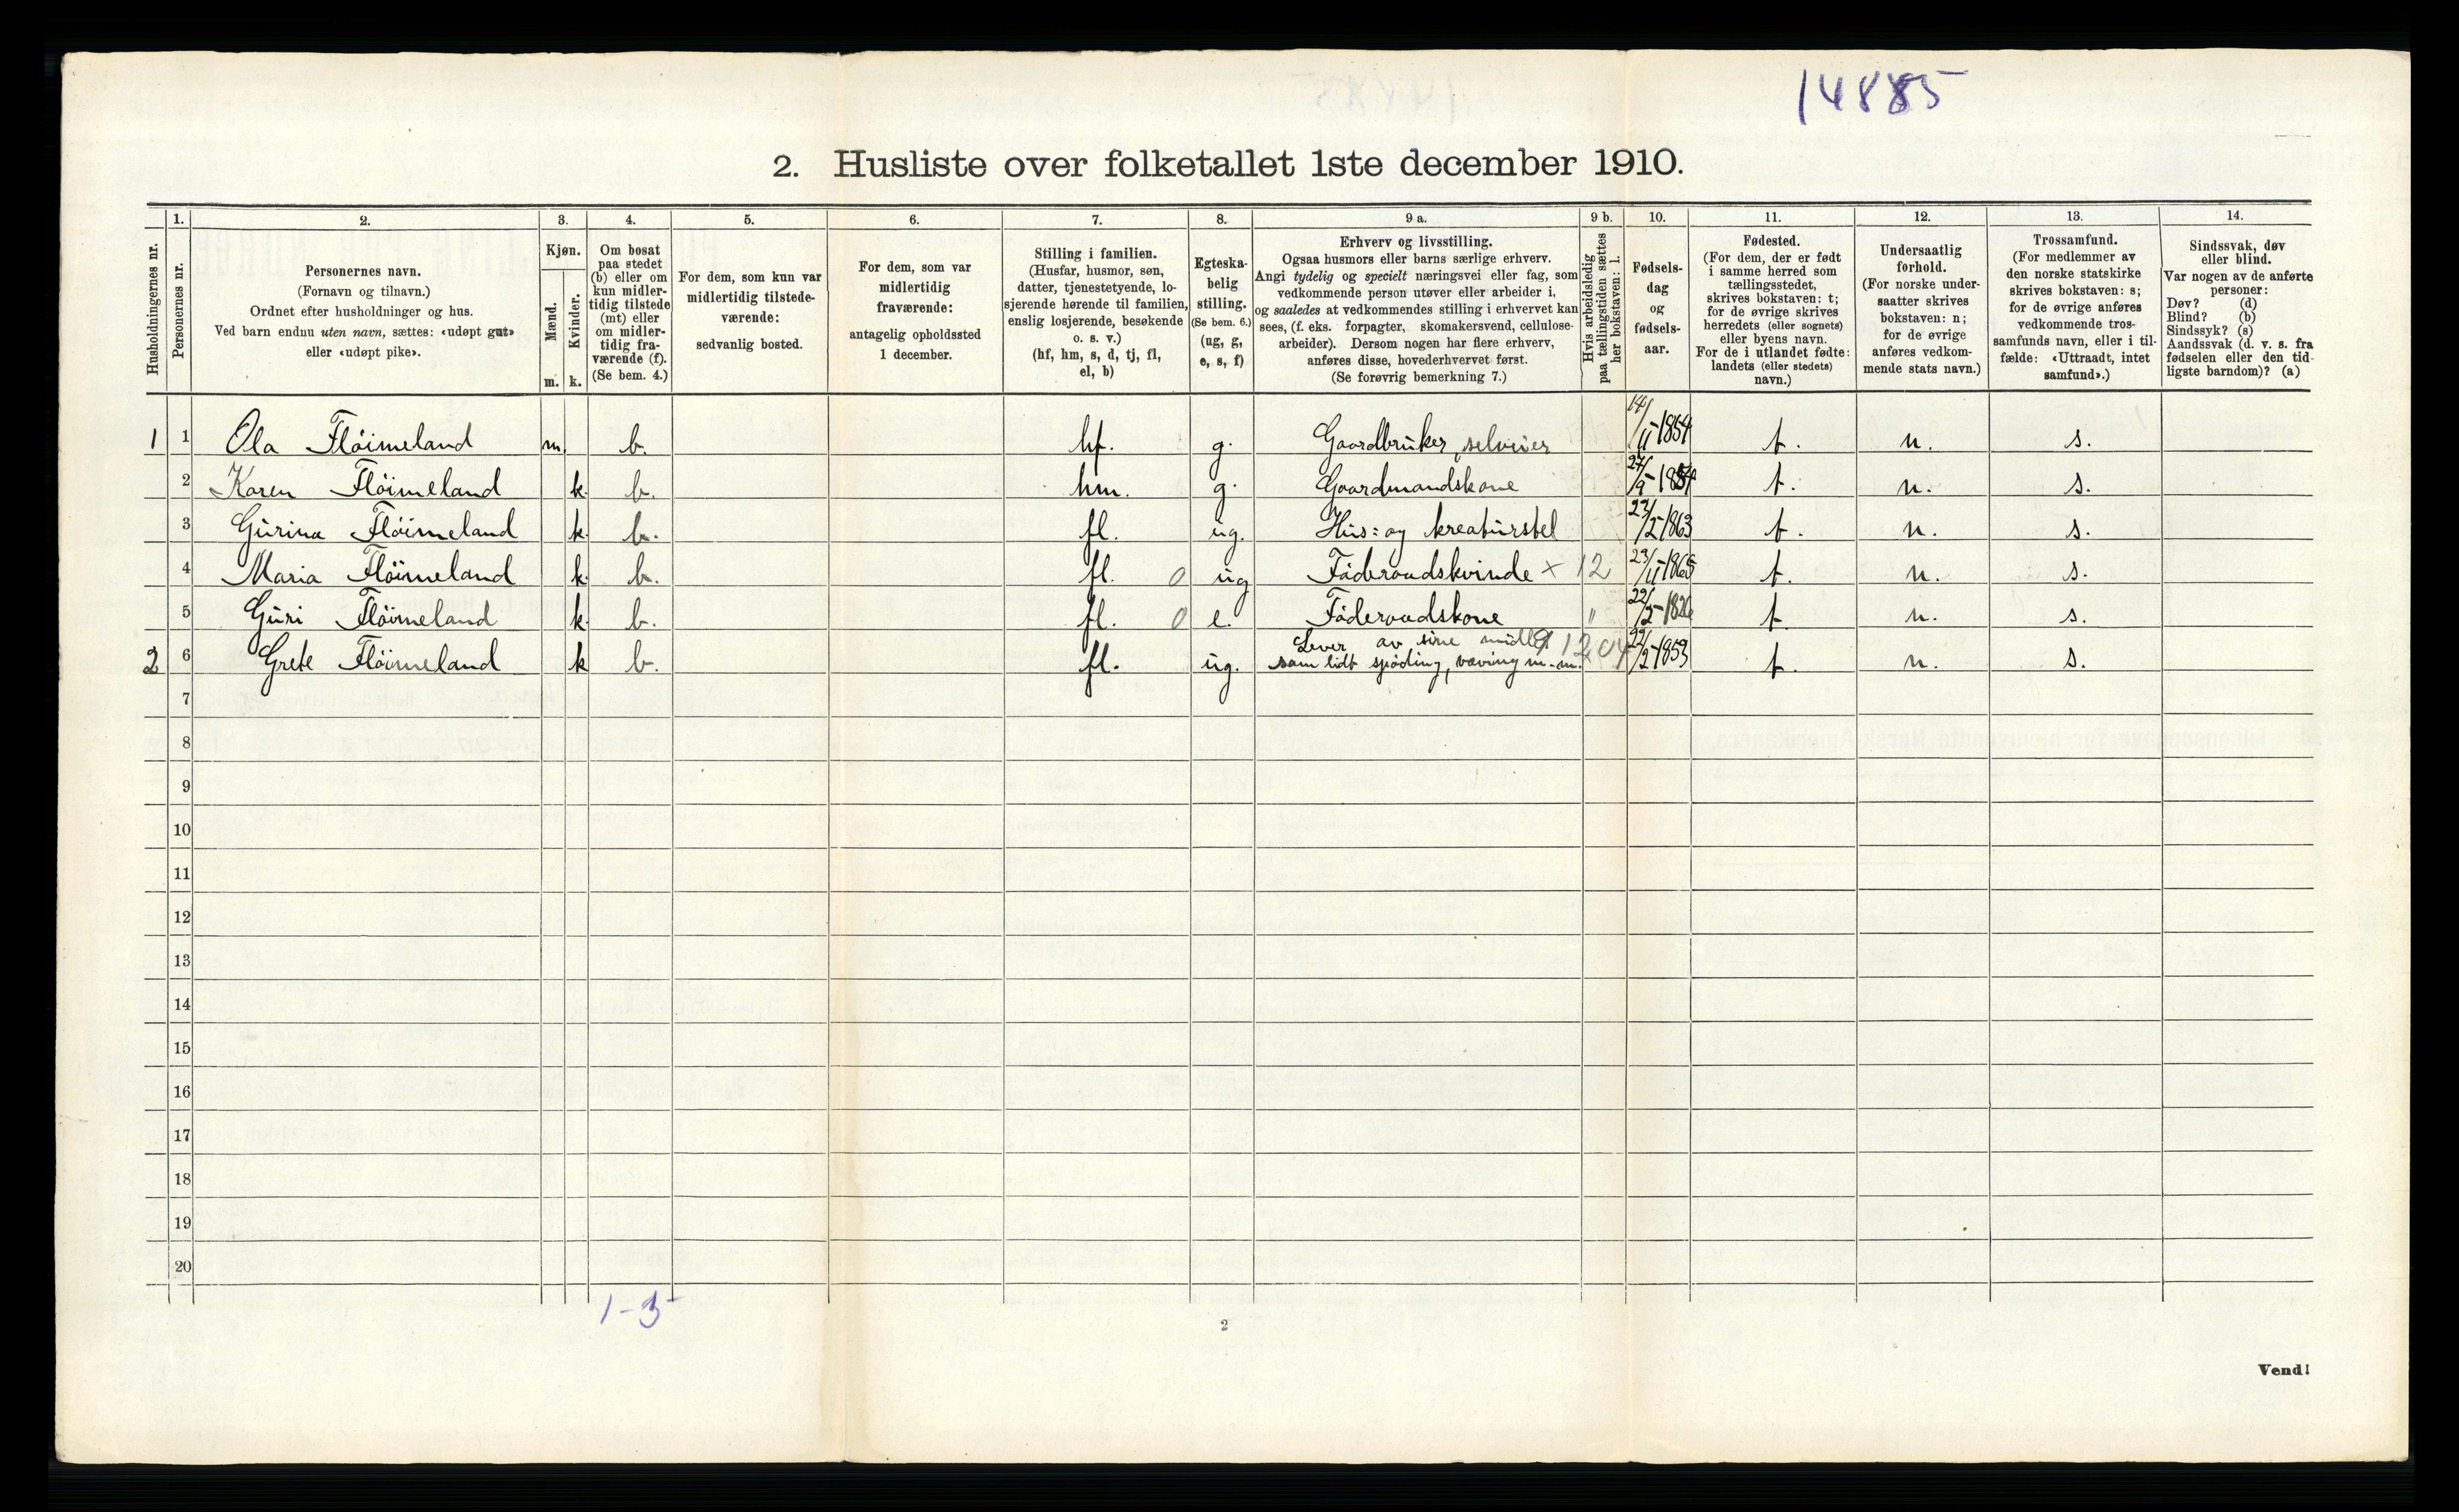 14885
2. Husliste over folketallet 1ste december 1910.
Husholdningernes nr.
1.
Personernes nr.
2.
Personernes navn.
(Fornavn og tilnavn.)
Ordnet efter husholdninger og hus.
Ved barn endnu uten navn, sættes: «udøpt gut»
eller «udøpt pike».
3.
Kjøn.
Mænd.
m.
Kvinder.
k.
4.
Om bosat
paa stedet
(b) eller om
kun midler-
tidig tilstede
(mt) eller
om midler-
tidig fra-
værende (f).
(Se bem. 4.)
5.
For dem, som kun var
midlertidig tilstede-
værende:
sedvanlig bosted.
6.
For dem, som var
midlertidig
fraværende:
antagelig opholdssted
1 december.
7.
Stilling i familien.
(Husfar, husmor, søn,
datter, tjenestetyende, lo-
sjerende hørende til familien,
enslig losjerende, besøkende
o. s. v.)
(hf, hm, s, d, tj, fl,
el, b)
8.
Egteska-
belig
stilling.
(Se bem. 6.)
(ug, g,
e, s, f)
9 a.
Erhverv og livsstilling.
Ogsaa husmors eller barns særlige erhverv.
Angi tydelig og specielt næringsvei eller fag, som
vedkommende person utøver eller arbeider i,
og saaledes at vedkommendes stilling i erhvervet kan
sees, (f. eks. forpagter, skomakersvend, cellulose-
arbeider). Dersom nogen har flere erhverv,
anføres disse, hovederhvervet først.
(Se forøvrig bemerkning 7.)
9 b.
Hvis arbeidsledig
paa tællingstiden sættes
her bokstaven: l.
10.
Fødsels-
dag
og
fødsels-
aar.
11.
Fødested.
(For dem, der er født
i samme herred som
tællingsstedet,
skrives bokstaven: t;
for de øvrige skrives
herredets (eller sognets)
eller byens navn.
For de i utlandet fødte:
landets (eller stedets)
navn.)
12.
Undersaatlig
forhold.
(For norske under-
saatter skrives
bokstaven: n;
for de øvrige
anføres vedkom-
mende stats navn.)
13.
Trossamfund.
(For medlemmer av
den norske statskirke
skrives bokstaven: s;
for de øvrige anføres
vedkommende tros-
samfunds navn, eller i til-
fælde: «Uttraadt, intet
samfund».)
14.
Sindssvak, døv
eller blind.
Var nogen av de anførte
personer:
Døv? (d)
Blind? (b)
Sindssyk? (s)
Aandssvak (d. v. s. fra
fødselen eller den tid-
ligste barndom)? (a)
1 1 Ola Flöimeland m. b. hf. g. Gaardbruker, selveier 14/11-1854 t. n. s.
2 Karen Flöimeland k. b. hm. g. Gaardmandskone 27/9-1854 t. n. s.
3 Gurina Flöimeland k. b. fl. ug. Hus: og kreaturstel 23/2-1863 t. n. s.
4 Maria Flöimeland k. b. fl. 0 ug Föderaadskvinde x 12 23/11-1865 t. n. s.
5 Guri Flöimeland k. b. fl. 0 e. Föderaadskone " 22/5-1826 t. n. s.
2 6 Grete Flöimeland k b. fl. ug. Lever av sine midler
samt lidt spöding, væving m.m. 22/2-1859 t. n. s.
7
8
9
10
11
12
13
14
15
16
17
18
19
20
1-5
2
Vend!